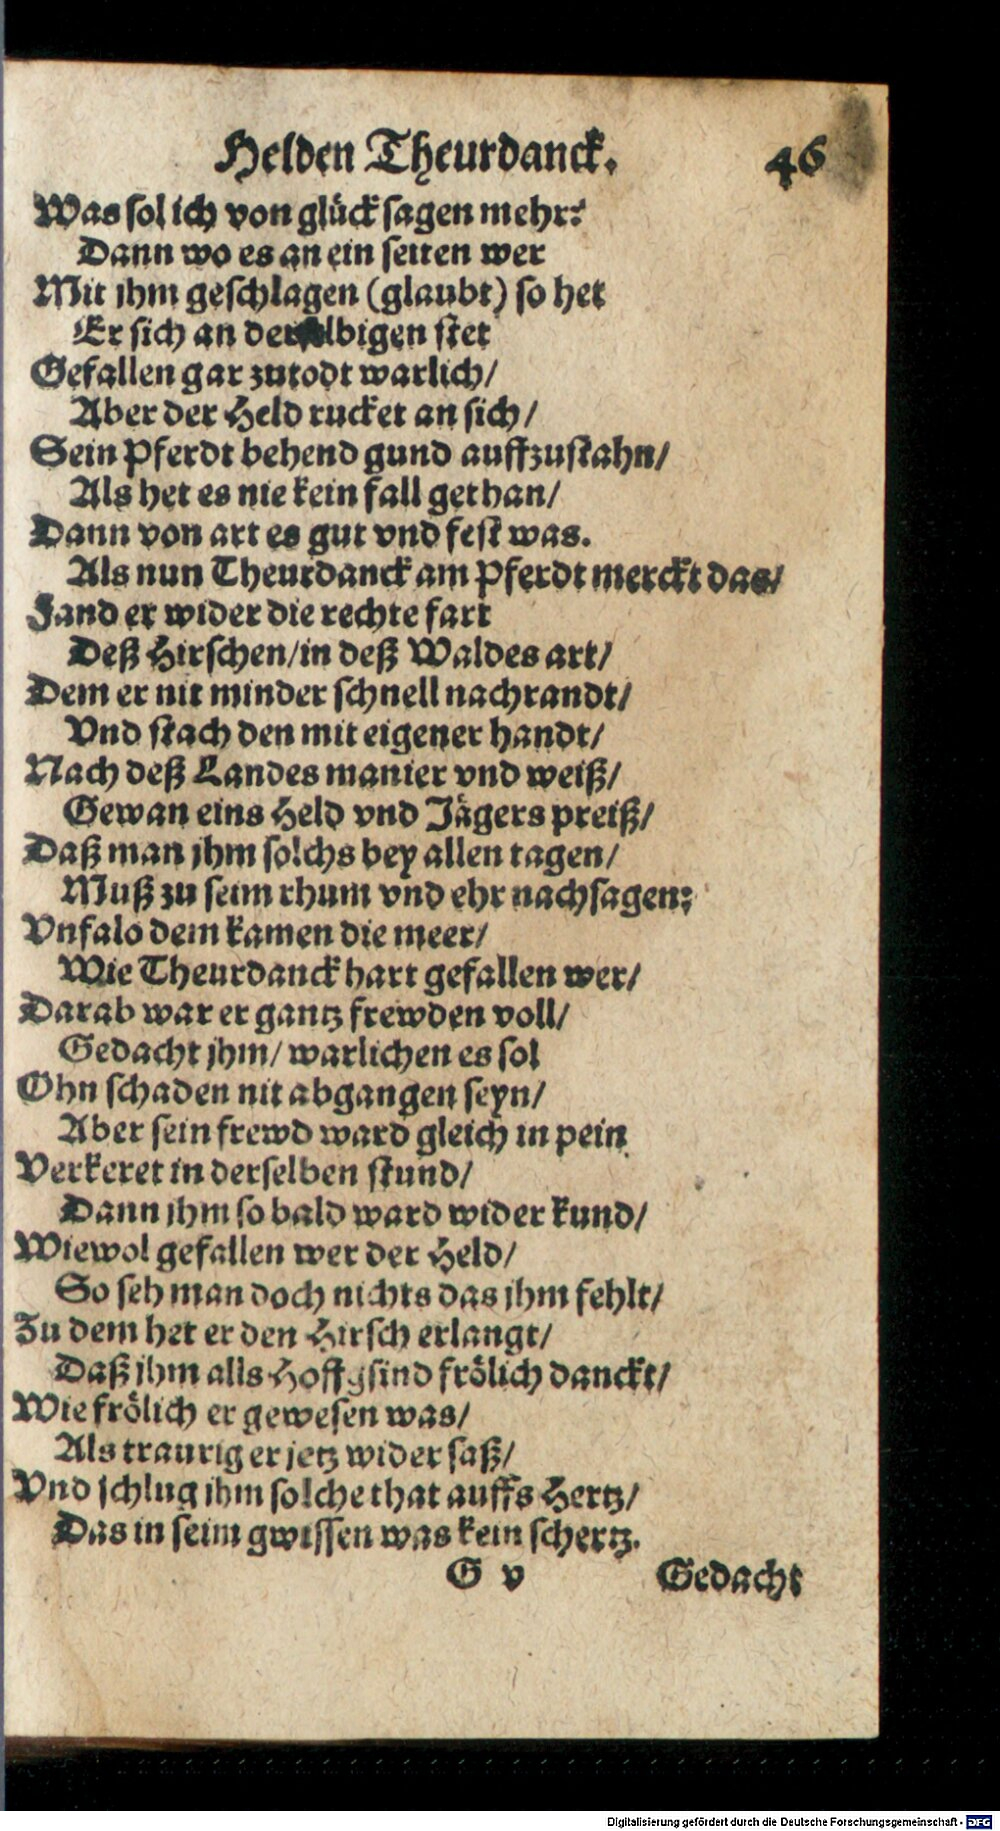 Helden Theurdanck. 46
Was sol ich von glück sagen mehr:
Dann wo es an ein seiten wer
Mit jhm geschlagen (glaubt) so het
Er sich an derselbigen stet
Gefallen gar zutodt warlich/
Aber der Held rucket an sich/
Sein Pferdt behend gund auffzustahn/
Als het es nie kein fall gethan/
Dann von art es gut vnd fest was.
Als nun Theurdanck am Pferdt merckt das/
Fand er wider die rechte fart
Deß Hirschen/in deß Waldes art/
Dem er nit minder schnell nachrandt/
Vnd stach den mit eigener handt/
Nach deß Landes manier vnd weiß/
Gewan eins Held vnd Jägers preiß/
Daß man jhm solchs bey allen tagen/
Muß zu seim rhum vnd ehr nachsagen:
Vnfalo dem kamen die meer/
Wie Theurdanck hart gefallen wer/
Darab war er gantz frewden voll/
Gedacht jhm/ warlichen es sol
Ohn schaden nit abgangen seyn/
Aber sein frewd ward gleich in pein
Verkeret in derselben stund/
Dann jhm so bald ward wider kund/
Wiewol gefallen wer der Held/
So seh man doch nichts das jhm fehlt/
Zu dem het er den Hirsch erlangt/
Daß jhm alls Hoffgsind frölich danckt/
Wie frölich er gewesen was/
Als traurig er jetz wider saß/
Vnd schlug jhm solche that auffs Hertz/
Das in seim gwissen was kein schertz.
G v Gedacht
Digitalisierung gefördert durch die Deutsche Forschungsgemeinschaft - DFG